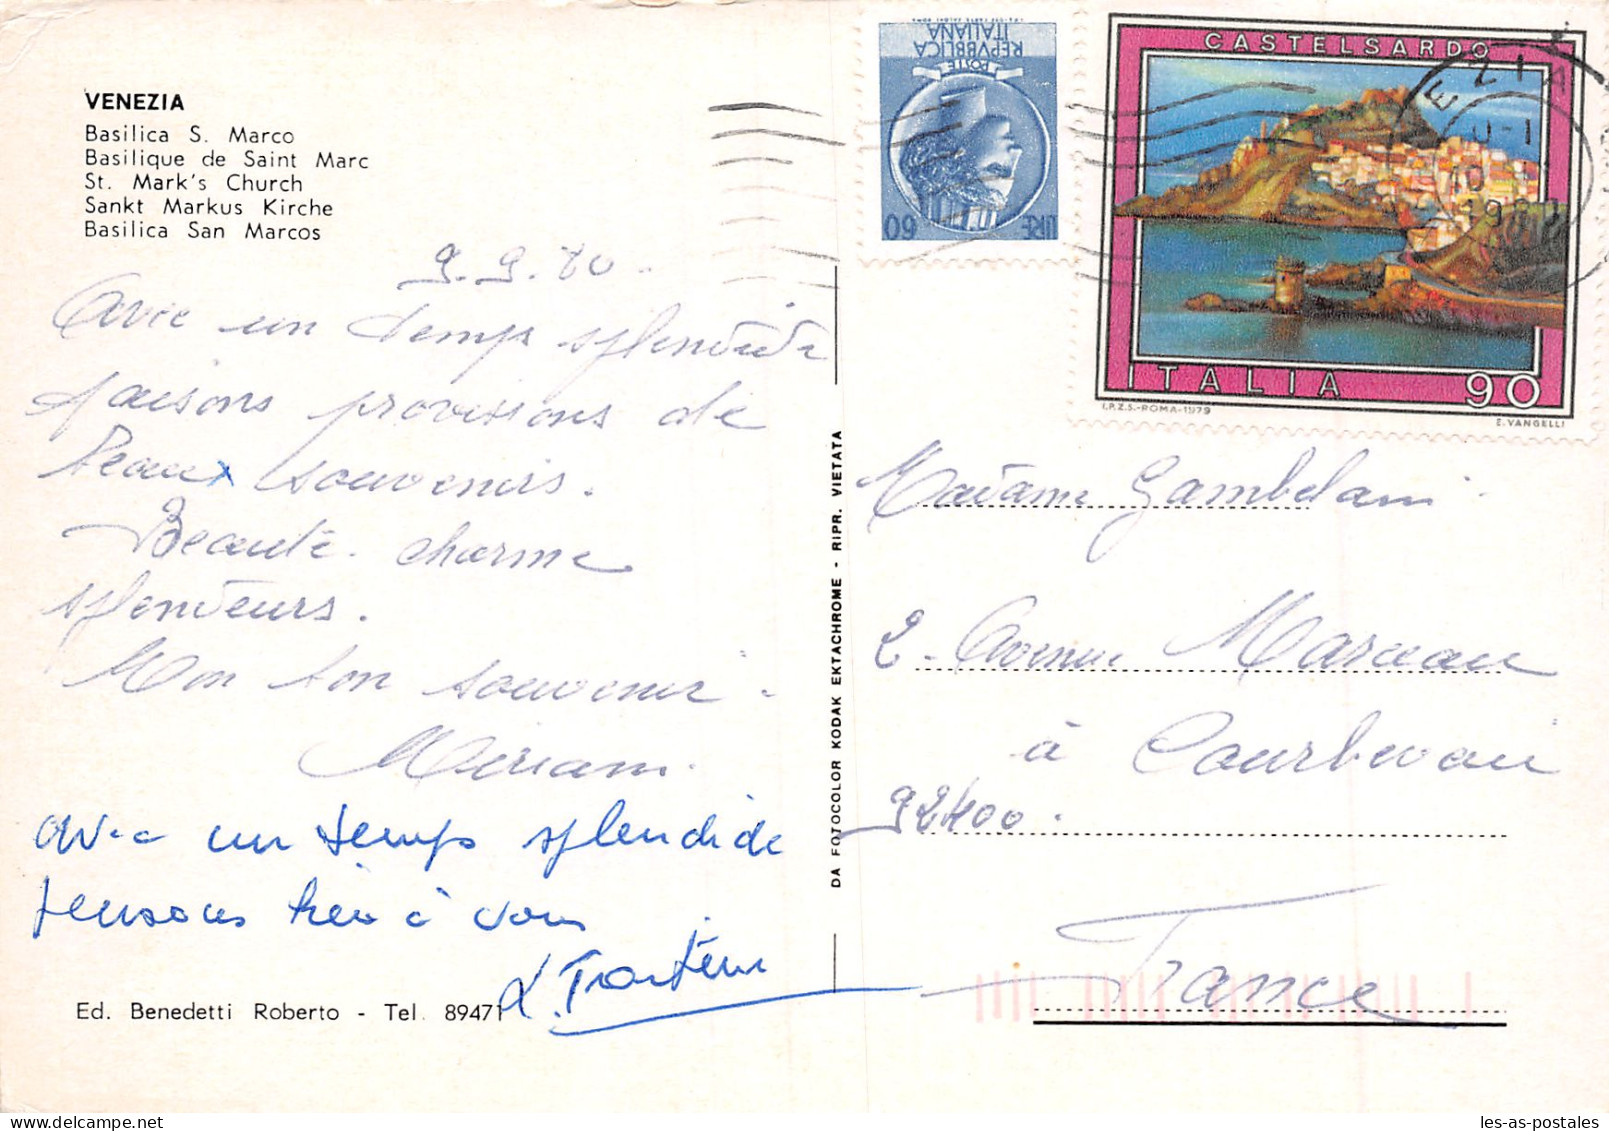 VENEZIA
Basilica S. Marco
Basilique de Saint Marc
St. Mark's Church
Sankt Markus Kirche
Basilica San Marcos
9.9.80.
Avec un temps splendide
faisons provisions de
beaux souvenirs.
Beauté. charme
splendeurs.
Mon bon souvenir.
Miriam.
avec un temps splendide
pensons à vous
Ed. Benedetti Roberto - Tel. 89471
DA FOTOCOLOR KODAK EKTACHROME - RIPR. VIETATA
REPVBBLICA
ITALIANA
POSTE
LIRE 60
CASTELSARDO
ITALIA 90
I.P.Z.S.-ROMA-1979
E. VANGELLI
Madame Gambelani
2 - Avenue Marceau
à Courbevoie
92400.
France
les-as-postales